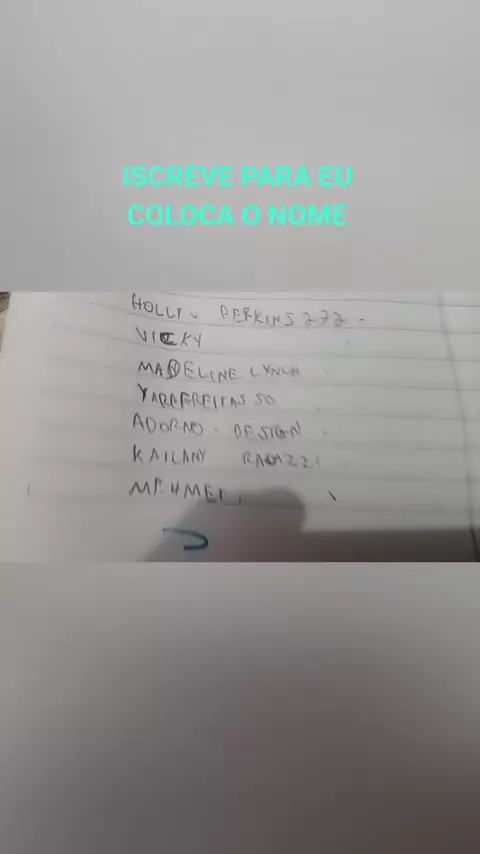 ISCREVE PARA EU
COLOCA O NOME
HOLLY PERKINS 272
VICKY
MADELINE LYNCH
YARAFREITAS SO
ADORNO. DESIGN
KAILANY RAGAZZI
MEHMET.